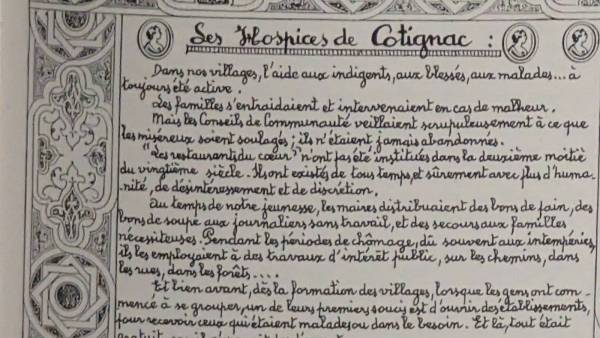 Les Hospices de Cotignac :
Dans nos villages, l'aide aux indigents, aux blessés, aux malades... a
toujours été active.
Les familles s'entraidaient et intervenaient en cas de malheur.
Mais les Conseils de Communauté veillaient scrupuleusement à ce que
les miséreux soient soulagés; ils n'étaient jamais abandonnés.
"Les restaurants du cœur" n'ont pas été institués dans la deuxième moitié
du vingtième siècle. Ils ont existés de tous temps, et sûrement avec plus d'huma-
nité, de désintéressement et de discrétion.
Au temps de notre jeunesse, les maires distribuaient des bons de pain, des
bons de soupe aux journaliers sans travail, et des secours aux familles
nécessiteuses. Pendant les périodes de chômage, dû souvent aux intempéries,
ils les employaient à des travaux d'intérêt public, sur les chemins, dans
les rues, dans les forêts....
Et bien avant, dès la formation des villages, lorsque les gens ont com-
mencé à se grouper, un de leurs premiers soucis est d'ouvrir des établissements,
pour recevoir ceux qui étaient malades ou dans le besoin. Et là, tout était